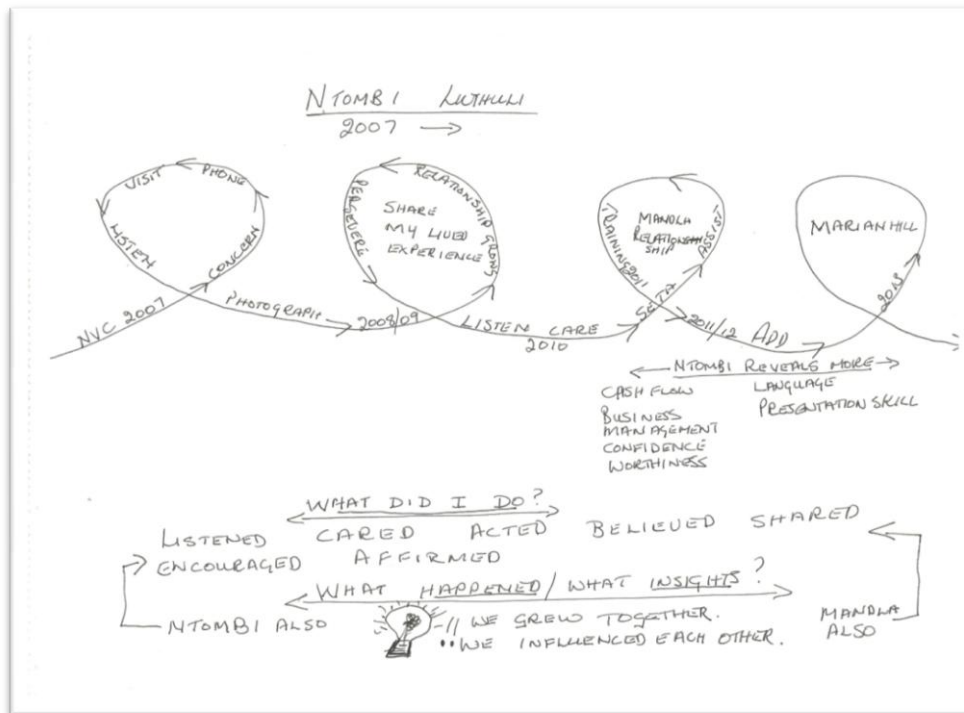 NTOMBI LUTHULI
2007 →
NVC 2007
CONCERN
PHONE
VISIT
LISTEN
PHOTOGRAPH
2008/09
RELATIONSHIP GROWS
PERSEVERE
SHARE
MY LIVED
EXPERIENCE
LISTEN CARE
2010
SETA
ASSIST
TRAINING 2011
MANDLA
RELATION
SHIP
2011/12 ADD
2013
MARIANHILL
NTOMBI REVEALS MORE
CASH FLOW
BUSINESS
MANAGEMENT
CONFIDENCE
WORTHINESS
LANGUAGE
PRESENTATION SKILL
WHAT DID I DO?
LISTENED CARED ACTED BELIEVED SHARED
ENCOURAGED AFFIRMED
WHAT HAPPENED/WHAT INSIGHTS?
NTOMBI ALSO
// WE GREW TOGETHER.
•• WE INFLUENCED EACH OTHER.
MANDLA
ALSO